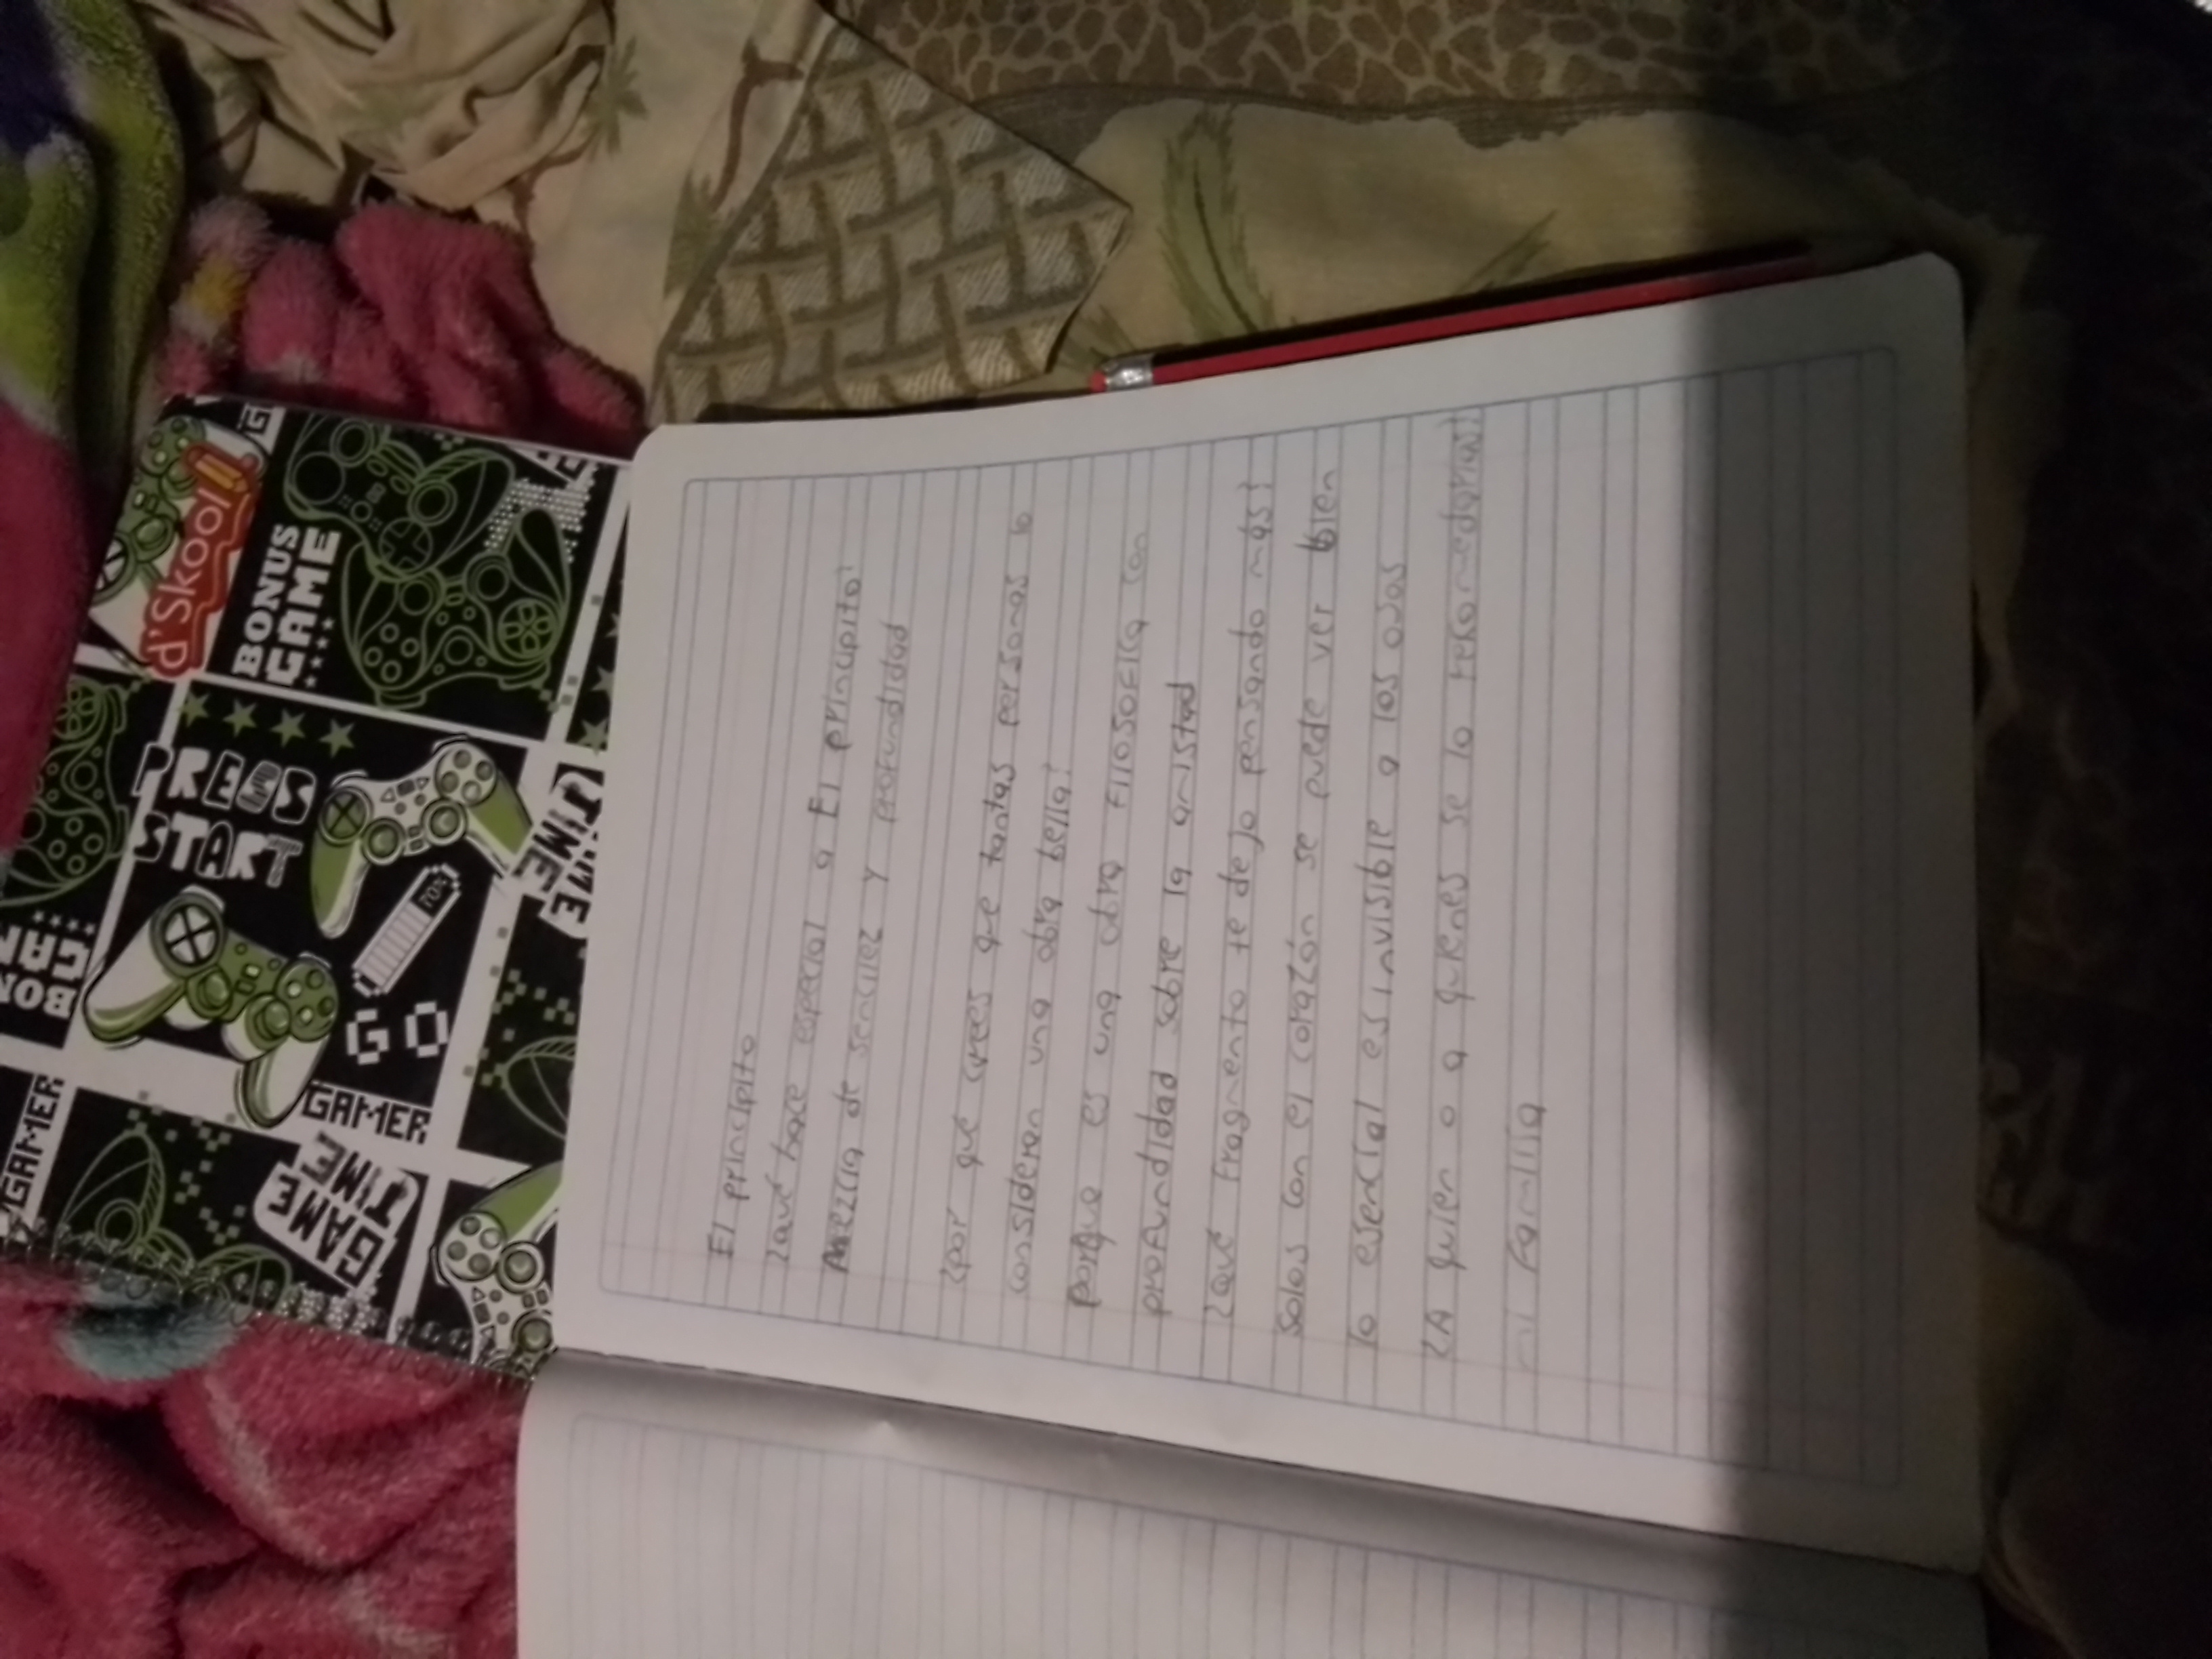 El principito
¿Qué hace especial a El principito?
Mezcla de sencilez y profundidad
¿por qué crees que tantas personas lo
consideren una obra bella?
porque es una obra filosofica con
profundidad sobre la amistad
¿Qué fragmento te dejo pensando más?
Solos con el corazón se puede ver bien
lo esencial es invisible a los ojos
¿A quien o a quienes se lo rekomedarias?
mi familia
d'Skool
BONUS
GAME
PRESS
START
70%
GO
GAMER
GAME
TIME
GAME
TIME
GAMER